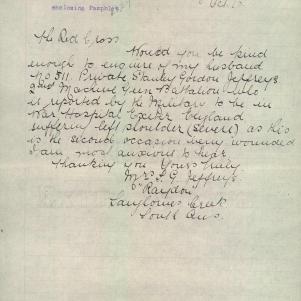 enclosing Pamphlet
Oct. 17
The Red Cross
Would you be kind
enough to enquire of my husband
No 511. Private Stanley Gordon Jeffreys
2nd Machine Gun Battalion who
is reported by the Military to be in
War Hospital Exeter England
suffering left shoulder (severe) as this
is the second occasion being wounded
I am most anxious to hear.
Thanking you Yours truly
Mrs S. G. Jeffreys.
"Raydon"
Langhornes Creek
South Aus.